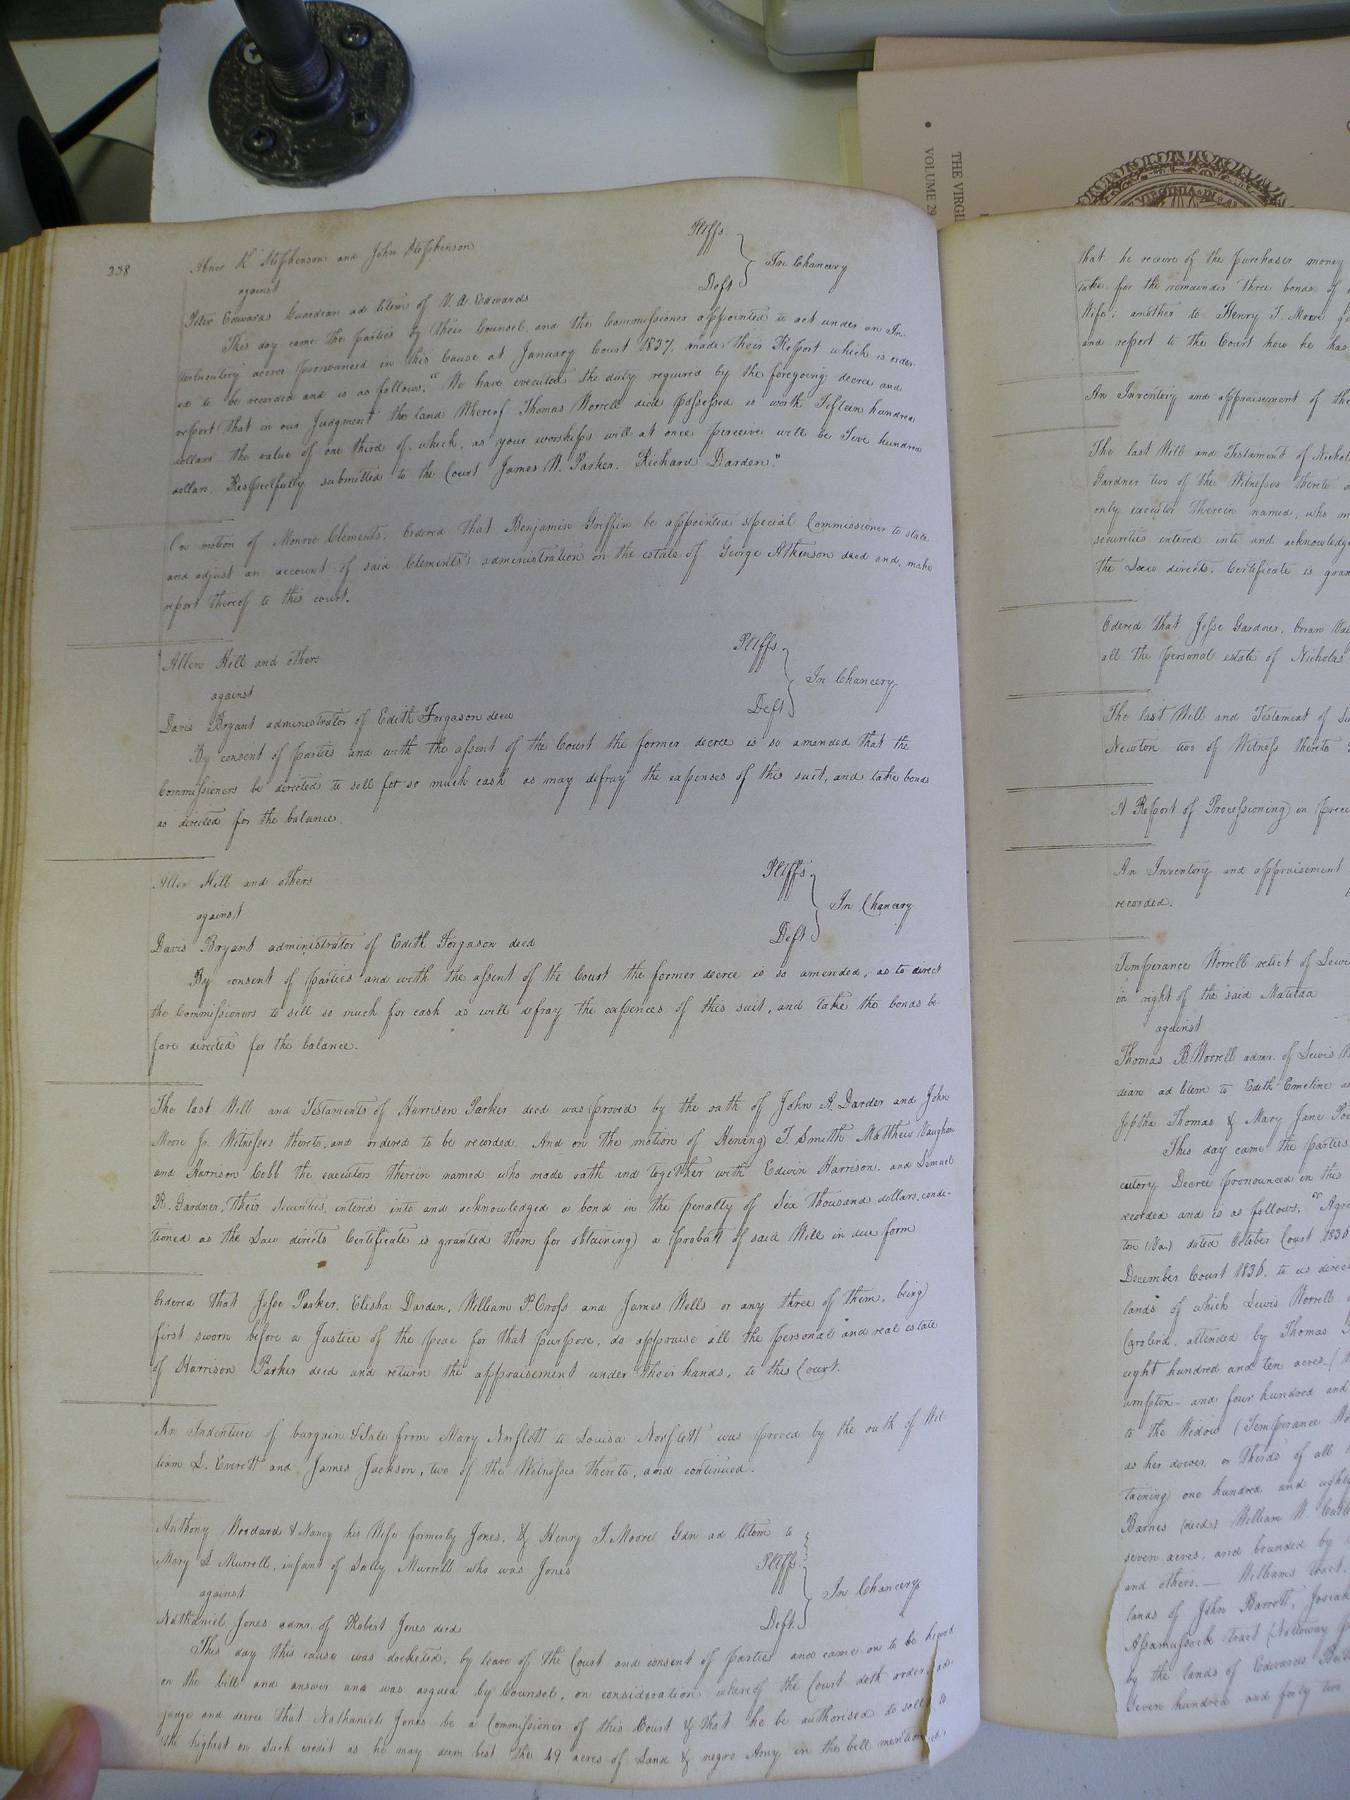 238
Abner K Stephenson and John Stephenson Pltffs
against In Chancery
Peter Edwards Guardian ad litem of V. A. Edwards Deft
This day came the parties by their Counsel, and the Commissioner appointed to act under an In-
terlocutory decree pronounced in this Cause at January Court 1837, made their Report which is order-
ed to be recorded and is as follows, "We have executed the duty required by the foregoing decree and
report that in our Judgment the land whereof Thomas Worrell died possessed is worth Fifteen hundred
dollars the value of one third of which, as your worships will at once perceive will be Five hundred
dollars. Respectfully submitted to the Court James W. Parker. Richard Darden."
On motion of Monroe Clements. Ordered that Benjamin Griffin be appointed special Commissioner to state
and adjust an account of said Clements's administration on the estate of George Atkinson decd and, make
report thereof to this court.
Allen Hill and others Pltffs
against In Chancery
Davis Bryant administrator of Edith Forgason decd Deft
By consent of parties and with the assent of the Court the former decree is so amended that the
Commissioners be directed to sell for so much cash as may defray the expenses of this suit, and take bonds
as directed for the balance.
Allen Hill and others Pltffs
against In Chancery
Davis Bryant administrator of Edith Forgason decd Deft
By consent of parties and with the assent of the Court the former decree is so amended, as to direct
the Commissioners to sell so much for cash as will defray the expences of this suit, and take the bonds be
fore directed for the balance.
The last Will and Testaments of Harrison Parker decd was proved by the oath of John A. Darden and John
Moore Jr. Witnesses thereto, and ordered to be recorded. And on the motion of Hening T. Smith Matthew Vaughan
and Harrison Cobb the executors therein named who made oath and together with Edwin Harrison, and Lemuel
R. Gardner, their Securities, entered into and acknowledged a bond in the penalty of Six thousand dollars, condi-
tioned as the Law directs Certificate is granted them for obtaining a probatt of said Will in due form
Ordered that Jesse Parker, Elisha Darden, William P. Cross and James Wells or any three of them, being
first sworn before a Justice of the peac for that purpose, do appraise all the personal and real estate
of Harrison Parker decd and return the appraisement under their hands, to this Court.
An Indenture of bargain & Sale from Mary Norflett to Louisa Norflett was proved by the oath of Wil
liam L. Everett and James Jackson, two of the Witnesses thereto, and continued.
Anthony Woodard & Nancy his Wife formerly Jones, & Henry T. Moore Gdn ad litem to
Mary L Murrell, infant of Sally Murrell who was Jones Pltffs
against In Chancery
Nathaniel Jones admr. of Robert Jones decd Deft.
This day this cause was docketed, by leave of the Court and consent of parties and came on to be heard
on the bill and answer and was argued by Counsel, on consideration whereof the Court doth order ad-
judge and decree that Nathaniel Jones be a Commissioner of this Court & that he be authorised to sell to
the highest on such credit as he may deem best the 49 acres of Land & negro Amy in the bill mentioned,
that he receive of the purchaser money
take for the remainder three bonds of
Wife; another to Henry T. Moore
and report to the Court how he has
An Inventory and appraisement of the
The last Will and Testament of Nichol
Gardner two of the Witnesses thereto
only executor therein named, who m
securities entered into and acknowledge
the Law directs. Certificate is gran
Ordered that Jesse Gardner,
all the personal estate of Nicholas
The last Will and Testament of
Newton two of Witness thereto
A Report of Processioning in
An Inventory and appraisement
recorded.
Temperance Worrell relict of Lewis
in right of the said Matilda
against
Thomas B. Worrell admr. of Lewis W
dian ad litem to Edith Emeline
Thomas & Mary Jane
This day came the parties
cutory Decree pronounced in this
recorded and is as follows,
ton (Va.) dated October Court 1836
December Court 1836. to us direc
lands of which Lewis Worrell
Carolina, attended by Thomas
eight hundred and ten acres
ampton and four hundred and
to the Widow (Temperance Wo
as her dower, or thirds of all
taining one hundred and eighty
Barnes (decd) William W.
seven acres, and bounded by
and others. — Williams tract,
lands of John Barrett, Josiah
Assamussock tract (Nottoway
by the lands of Edwards
Seven hundred and forty two
THE VIRGI
VOLUME 29